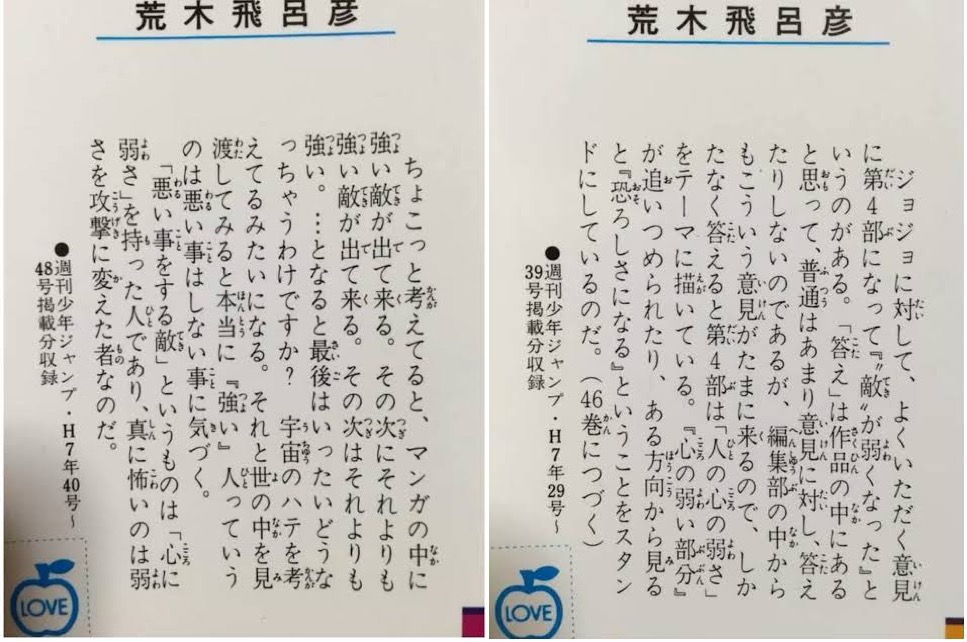 荒木飛呂彦
ジョジョに対して、よくいただく意見
に第4部になって『〝敵〟が弱くなった』と
いうのがある。「答え」は作品の中にある
と思って、普通はあまり意見に対し、答え
たりしないのであるが、編集部の中から
もこういう意見がたまに来るので、しか
たなく答えると第4部は「人の心の弱さ」
をテーマに描いている。『心の弱い部分』
が追いつめられたり、ある方向から見る
と『恐ろしさになる』ということをスタン
ドにしているのだ。(46巻につづく)
●週刊少年ジャンプ・H7年29号〜
39号掲載分収録
LOVE
荒木飛呂彦
ちょこっと考えてると、マンガの中に
強い敵が出て来る。その次にそれよりも
強い敵が出て来る。その次はそれよりも
強い。…となると最後はいったいどうな
っちゃうわけですか? 宇宙のハテを考
えてるみたいになる。それと世の中を見
渡してみると本当に『強い』人っていう
のは悪い事はしない事に気づく。
「悪い事をする敵」というものは「心に
弱さ」を持った人であり、真に怖いのは弱
さを攻撃に変えた者なのだ。
●週刊少年ジャンプ・H7年40号〜
48号掲載分収録
LOVE